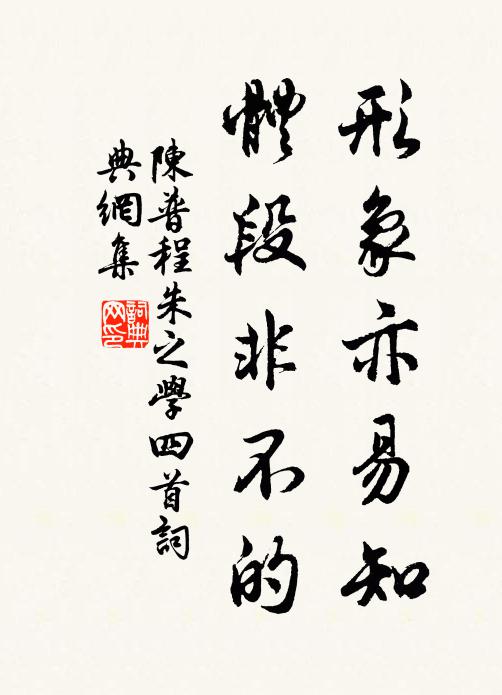 形象亦易知
體段非不的
陳普程朱之學四首詞
典網集
詞典
网印